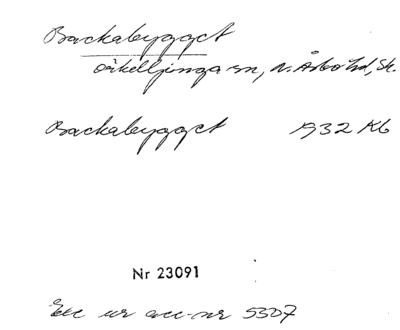 Backabygget
Örkelljunga sn, N. Åsbo hd, Sk.
Backabygget 1932 Kb
Nr 23091
Exc ur acc-nr 5307